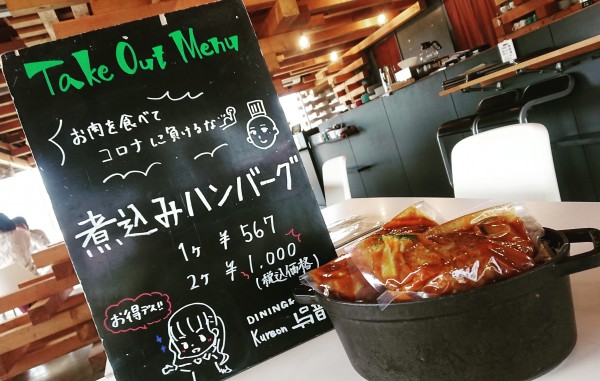 Take Out Menu
お肉を食べて
コロナに負けるな
煮込みハンバーグ
1ヶ ¥567
2ヶ ¥1,000
(税込価格)
お得デス!!
DINING&
Kuraon